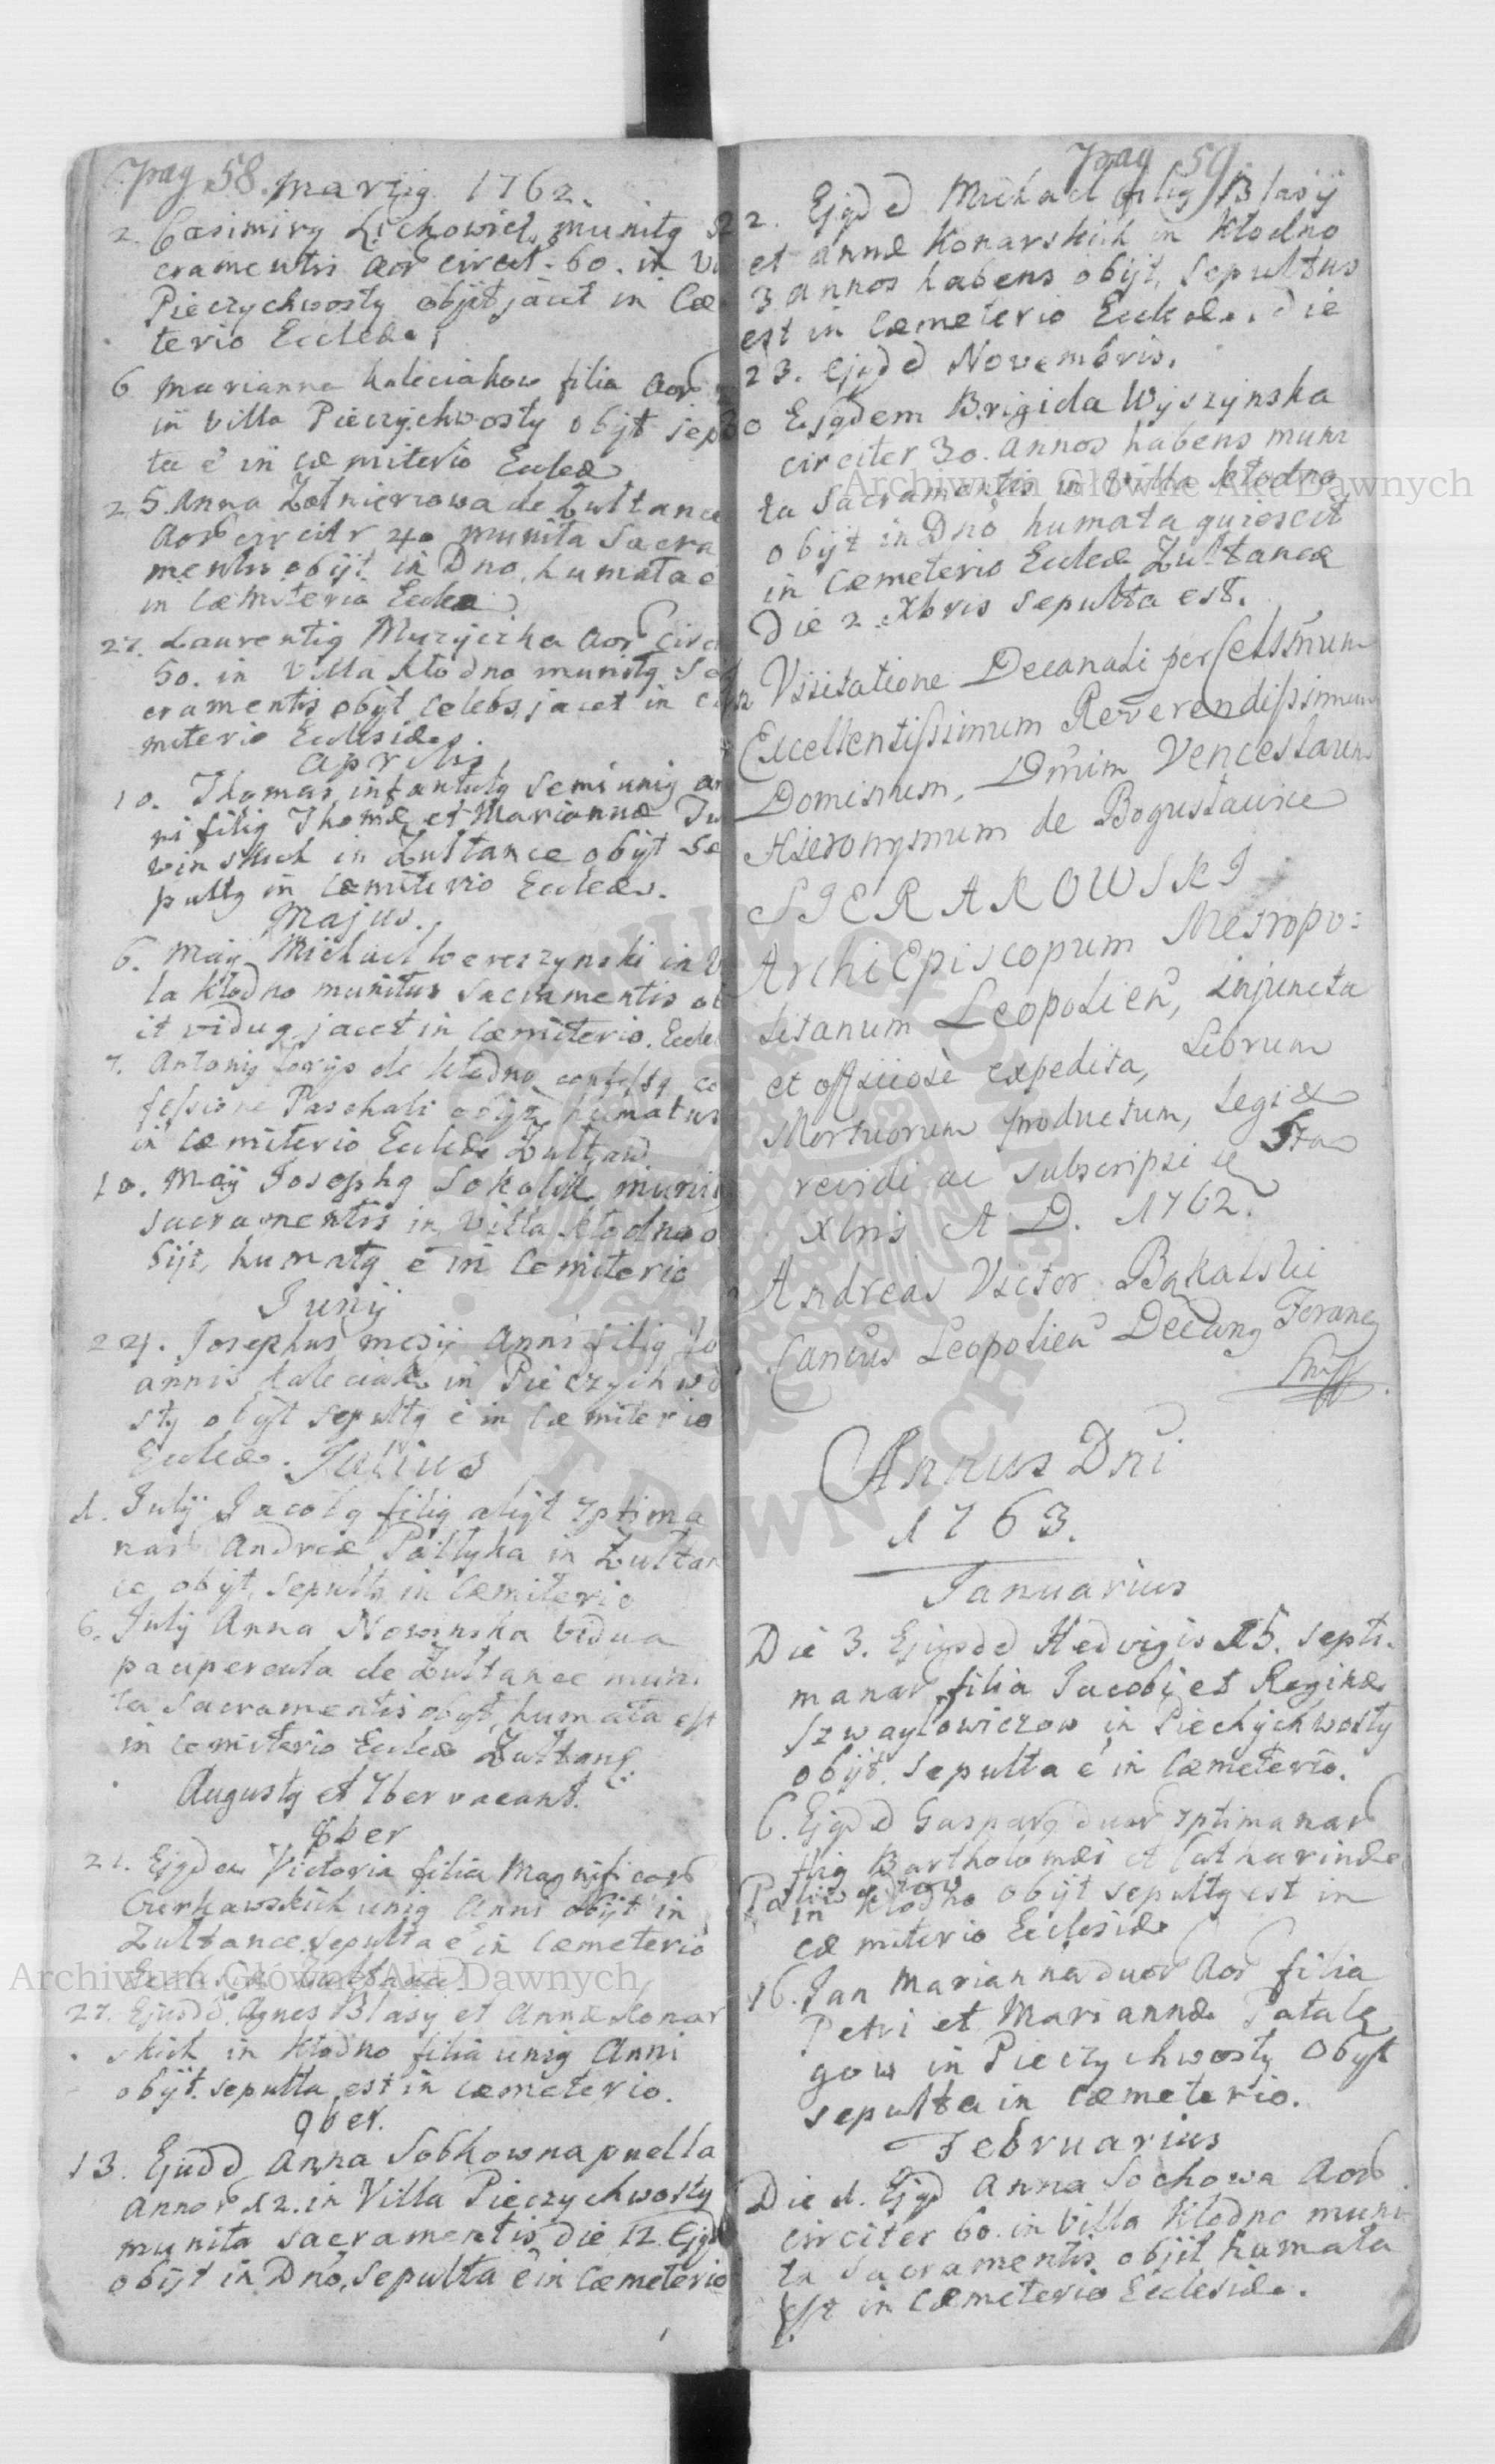 pag 58. Martijg 1762.
2. Casimirg Lichowicz munitg Sa
cramentis aor circit. 60. in Vi
Pieczychwosty obijt jacet in Cæ
terio Eccleæ.
6 Marianna Kaleciakow filia aor
in villa Pieczychwosty obijt sepu
ta e in cæmiterio Eccleæ
25. Anna Zołnierzowa de Zułtance
aor circitr 40 munita Sacra
mentis obijt in Dno, humata e
in Cæmiterio Eccleæ
27. Laurentig Muzyczka aor Circi
50. in Villa Kłodno munitg Sa
cramentis obijt celebs jacet in cæ
miterio Ecclesiæ.
Aprilis
10. Thomas infantulg semi unig an
ni filig Thomæ et Mariannæ
winskich in Zułtance obijt se
pultg in Cæmiterio Eccleæ.
Majus.
6. Maij Michael Wereszzynski in Vi
la Kłodno munitus sacramentis ob
it vidug jacet in Cæmiterio. Eccle
7. Antonig forys de Kłodno confessg co
fessione Paschali obijt humatus
in cæmiterio Eccleæ Zułtan
10. Maij Josephg Sokalik muni
sacramentis in Villa Kłodno o
bijt, humatg e in Cemiterio
Junij
24. Josephus medij Anni filig Jo
annis Kaleciak in Pieczychwo
sty obijt sepultg e in Cæmiterio
Eccleæ. Julius
1. Julij Jacobg filig aliqt 7ptima
nar Andreæ Pałtyka in Zułtan
ce obijt, sepultg in Cæmiterio
6. Julij Anna Nowinska vidua
paupercula de Zułtance muni
ta sacramentis obijt, humata est
in cemiterio Eccleæ Zułtanc.
Augustg et 7ber vacant.
8ber
21. Ejgdem Victoria filia Magnificor
Gurkawskich unig Anni obijt in
Zułtance sepulta e in Cæmeterio
Ecclesiæ Zułtanc.
27. Ejusdd. Agnes Blasij et Annæ Konar
skich in Kłodno filia unig Anni
obijt. sepulta est in cæmeterio.
9ber.
13. Ejudd Anna Sobkowna puella
annor 12. in Villa Pieczychwosty
munita sacramentis die 12. Ejgd
obijt in Dno, sepulta e in Cæmeterio
pag 59
22. Ejgdd Michael filig Blasij
et annæ Konarskich in Kłodno
3 annos habens obijt, sepultus
est in Cæmeterio Eccleæ. die
23. ejgdd Novembris.
30 Ejgdem Brigida Wyszynska
circiter 30. annos habens muni
ta sacramentis in villa Kłodno
obijt in Dno humata quiescit
in Cæmeterio Eccleæ Zułtancæ
Die 2. Xbris sepulta est.
In Visitatione Decanali per Celsmum
Excellentissimum Reverendissimum
Dominum, Dnum Venceslaum
Hieronymum de Bogusławice
SIERAKOWSKI
Archi Episcopum Metropo:
litanum Leopolien, injuncta
et officiose expedita, Librum
Mortuorum productum, legi &
revidi ac subscripsi
Xbris A D. 1762.
Andreas Victor Bąkalski
Cancus Leopolien Decang Foraneg
Annus Dni
1763.
Januarius
Die 3. Ejusdd Hedvigis 15. septi.
manar filia Jacobi et Reginæ
Szwayłowiczow in Piechychwosty
obijt. sepulta e in Cæmeterio.
6. Ejgdd Gasparg duor 7ptimanar
filig Bartholomæi et Catharinæ
in Kłodno obijt sepultg est in
cæmiterio Ecclesiæ
16. Jan Marianna duor Aor filia
Petri et Mariannæ Patalą
gow in Pieczychwosty Obijt
sepulta in Cæmeterio.
Februarius
Die 1. Ejgd Anna Sochowa Aor
circiter 60. in Villa Kłodno muni
ta Sacramentis obijt humata
est in Cæmeterio Ecclesiæ.
Archiwum Główne Akt Dawnych
Archiwum Główne Akt Dawnych
ARCHIWUM GŁÓWNE AKT DAWNYCH